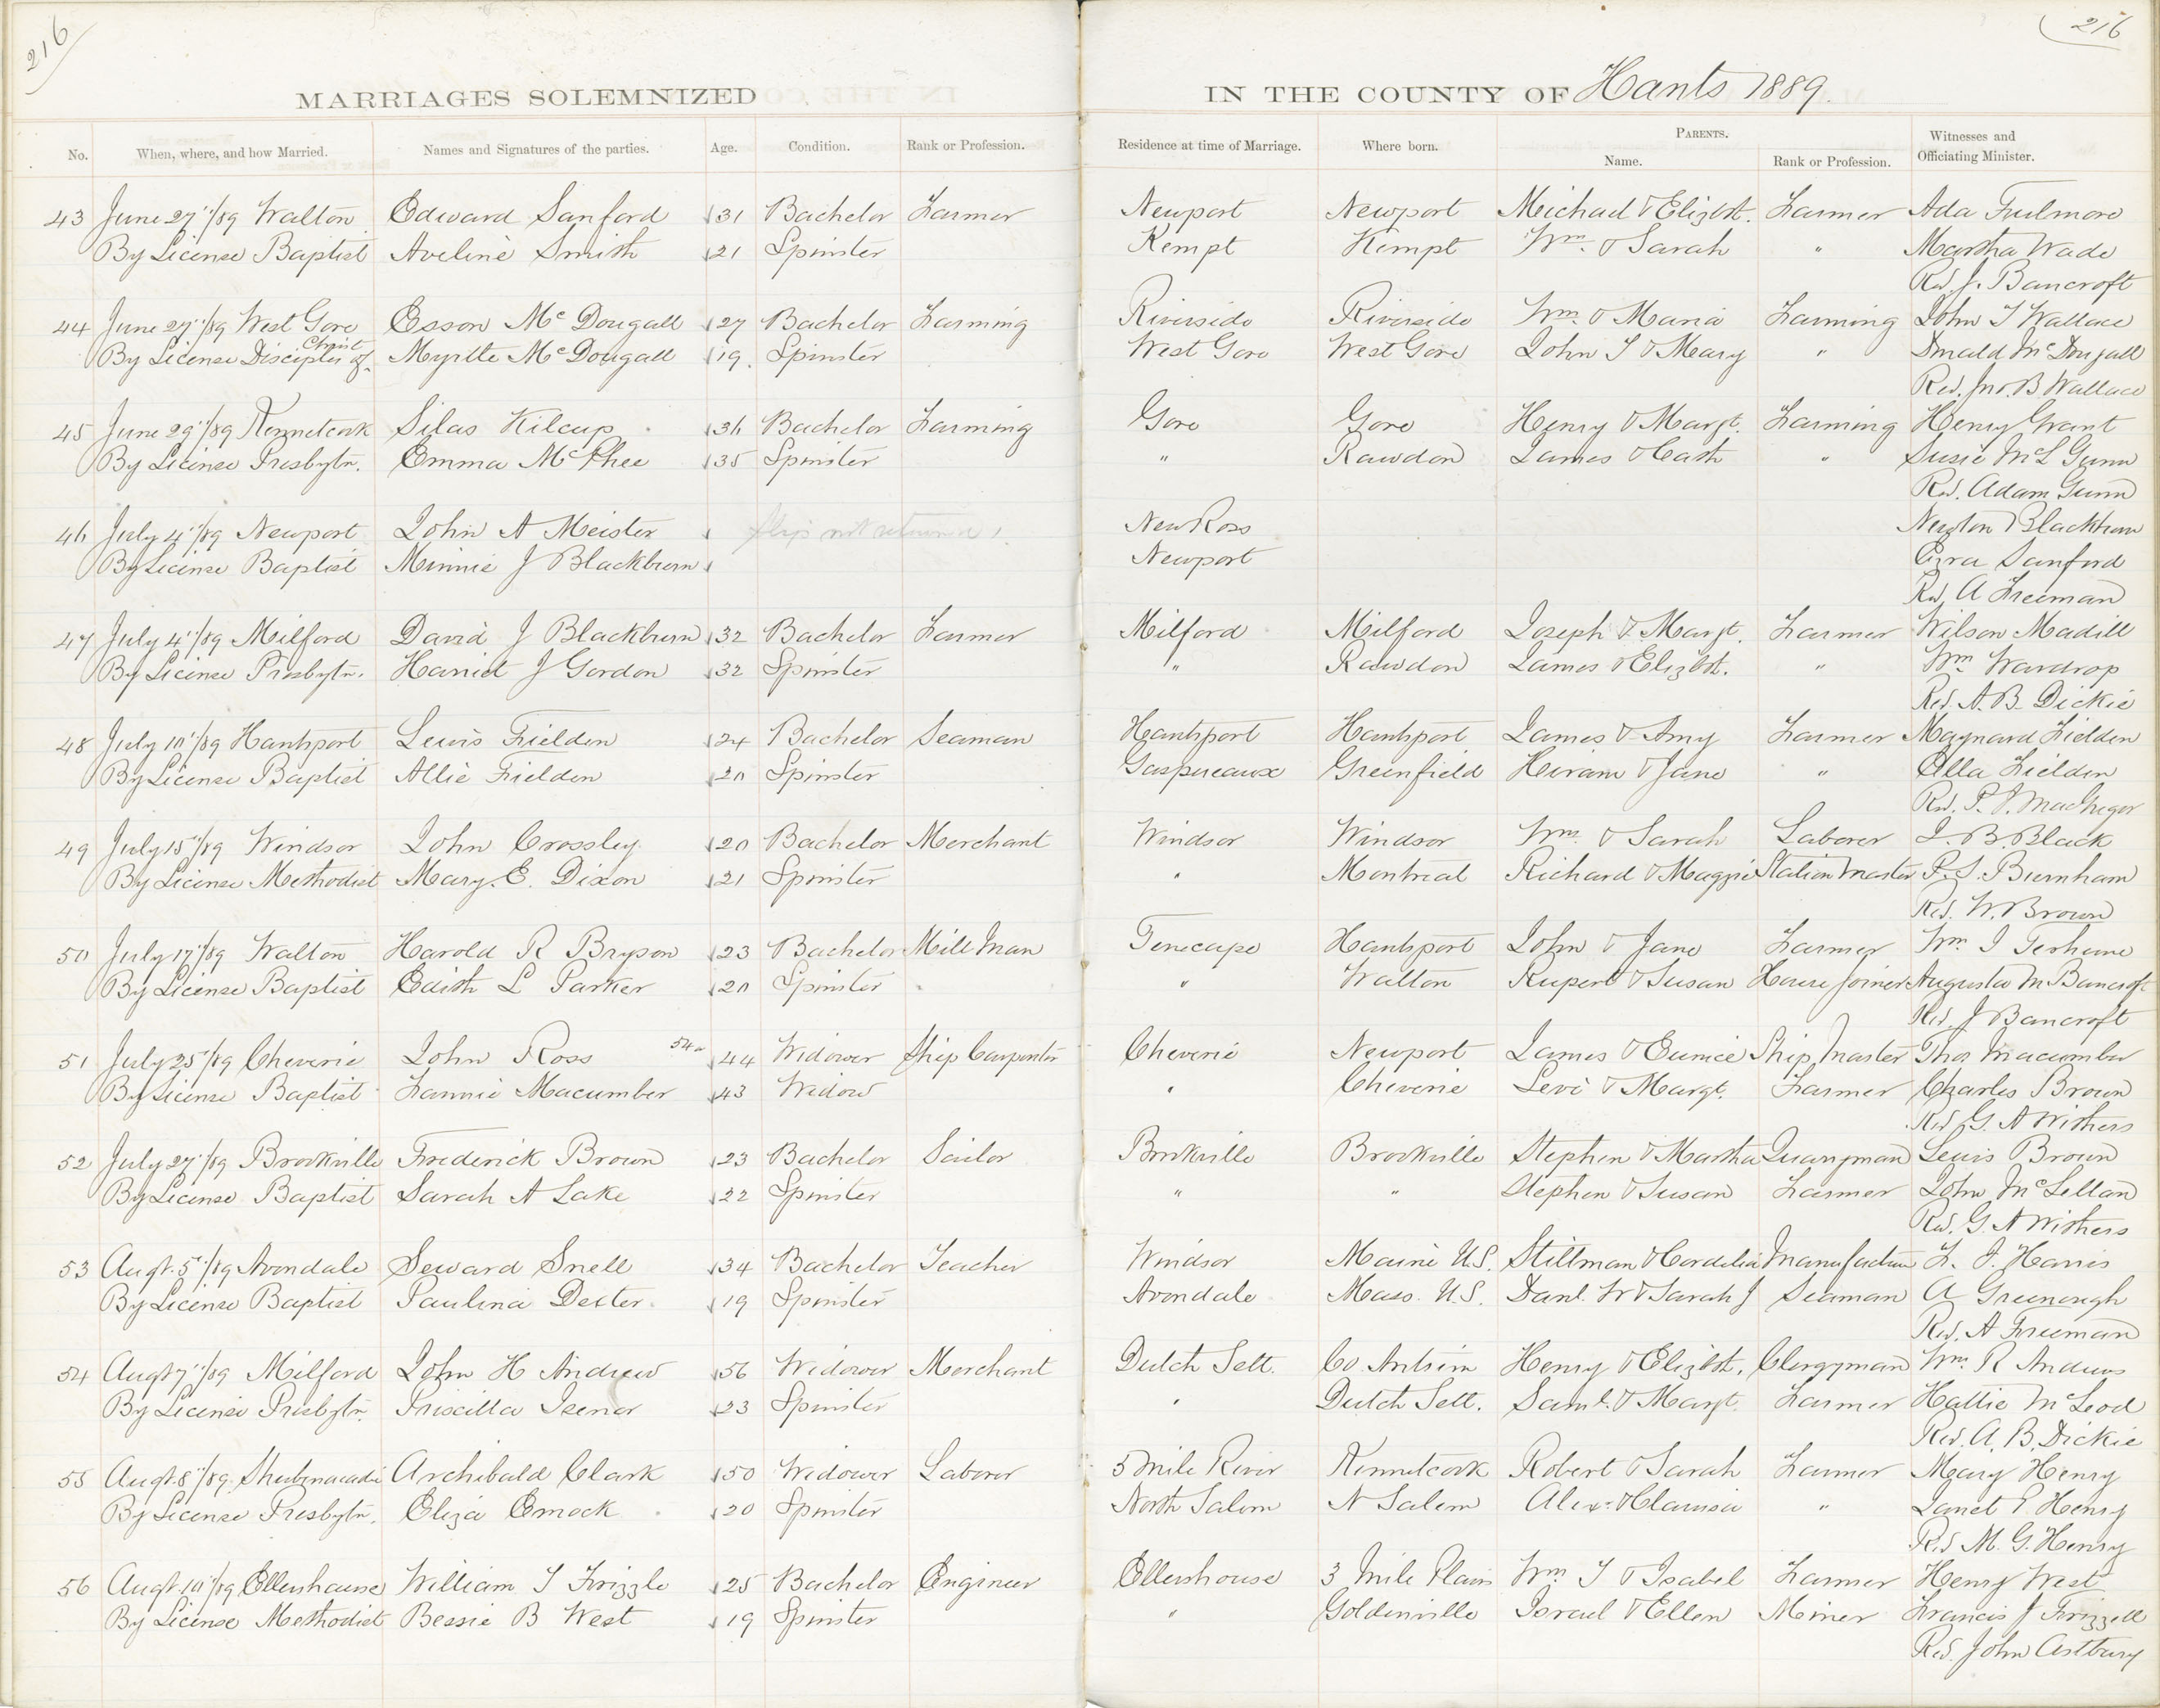 216
216
MARRIAGES SOLEMNIZED IN THE COUNTY OF Hants 1889.
No. When, where, and how Married. Names and Signatures of the parties. Age. Condition. Rank or Profession. Residence at time of Marriage. Where born. PARENTS. Name. Rank or Profession. Witnesses and Officiating Minister.
43 June 27"/89 Walton Edward Sanford 31 Bachelor Farmer Newport Newport Michael & Elizbt. Farmer Ada Fulmore
By License Baptist Aveline Smith 21 Spinster Kempt Kempt Wm. & Sarah " Martha Wade
Rd. J. Bancroft
44 June 27"/89 West Gore Esson McDougall 27 Bachelor Farming Riverside Riverside Wm. & Maria Farming John T Wallace
By License Disciples of Christ Myrtle McDougall 19. Spinster West Gore West Gore John S & Mary " Donald McDougall
Rev. Jno. B Wallace
45 June 29"/89 Kennetcook Silas Kilcup 36 Bachelor Farming Gore Gore Henry & Margt. Farming Henry Grant
By License Presbytn. Emma McPhee 35 Spinster " Rawdon James & Cath " Susie McL Gunn
Rd. Adam Gunn
46 July 4"/89 Newport John A Meister slip not returned New Ross Newton Blackburn
By License Baptist Minnie J Blackburn Newport Ezra Sanford
Rd. A Freeman
47 July 4"/89 Milford David J Blackburn 32 Bachelor Farmer Milford Milford Joseph & Margt. Farmer Wilson Madill
By License Presbytn. Harriet J Gordon 32 Spinster " Rawdon James & Elizbt. " Wm Wardrop
Rd. A. B. Dickie
48 July 10"/89 Hantsport Lewis Fielden 24 Bachelor Seaman Hantsport Hantsport James & Amy Farmer Maynard Fielden
By License Baptist Allie Fielden 20 Spinster Gaspereaux Greenfield Hiram & Jane " Ella Fielden
Rd. P. S. MacGregor
49 July 15"/89 Windsor John Crossley 20 Bachelor Merchant Windsor Windsor Wm. & Sarah Laborer J. B. Black
By License Methodist Mary. E. Dixon 21 Spinster " Montreal Richard & Maggie Station Master P. S. Burnham
Rd. W. Brown
50 July 17"/89 Walton Harold R Bryson 23 Bachelor Mill Man Tenecape Hantsport John & Jane Farmer Wm J Terhune
By License Baptist Edith L Parker 20 Spinster " Walton Rupert & Susan House Joiner Augusta M Bancroft
Rd J Bancroft
51 July 25"/89 Cheverie John Ross 54 44 Widower Ship Carpenter Cheverie Newport James & Eunice Ship Master Thos Macumber
By License Baptist Fannie Macumber 43 Widow " Cheverie Levi & Margt. Farmer Charles Brown
Rd G. A Withers
52 July 27"/89 Brookville Frederick Brown 23 Bachelor Sailor Brookville Brookville Stephen & Martha Quarryman Lewis Brown
By License Baptist Sarah A Lake 22 Spinster " " Stephen & Susan Farmer John McLellan
Rd. G. A Withers
53 Augt. 5"/89 Avondale Seward Snell 34 Bachelor Teacher Windsor Maine U.S. Stillman & Cordelia Manufacturer F. J. Harris
By License Baptist Paulina Dexter. 19 Spinster Avondale Mass. U.S. Danl. W & Sarah J Seaman A Greenough
Rd. A Freeman
54 Augt 7"/89 Milford John H Andrew 56 Widower Merchant Dutch Sett. Co Antrim Henry & Elizbt. Clergyman Wm. R Andrews
By License Presbytn. Priscilla Isenor 23 Spinster " Dutch Sett. Saml. & Margt. Farmer Hattie McLeod
Rd. A. B. Dickie
55 Augt. 8"/89. Shubenacadie Archibald Clark 50 Widower Laborer 5 Mile River Kennetcook Robert & Sarah Farmer Mary Henry
By License Presbytn. Eliza Emock 20 Spinster North Salem N Salem Alexr. & Clarissa " Janet P Henry
Rd M. G. Henry
56 Augt. 10"/89 Ellershouse William T Frizzle 25 Bachelor Engineer Ellershouse 3 Mile Plain Wm T & Isabel Farmer Henry West
By License Methodist Bessie B West 19 Spinster " Goldenville Israel & Ellen Miner Francis J Frizzell
Rd. John Astbury